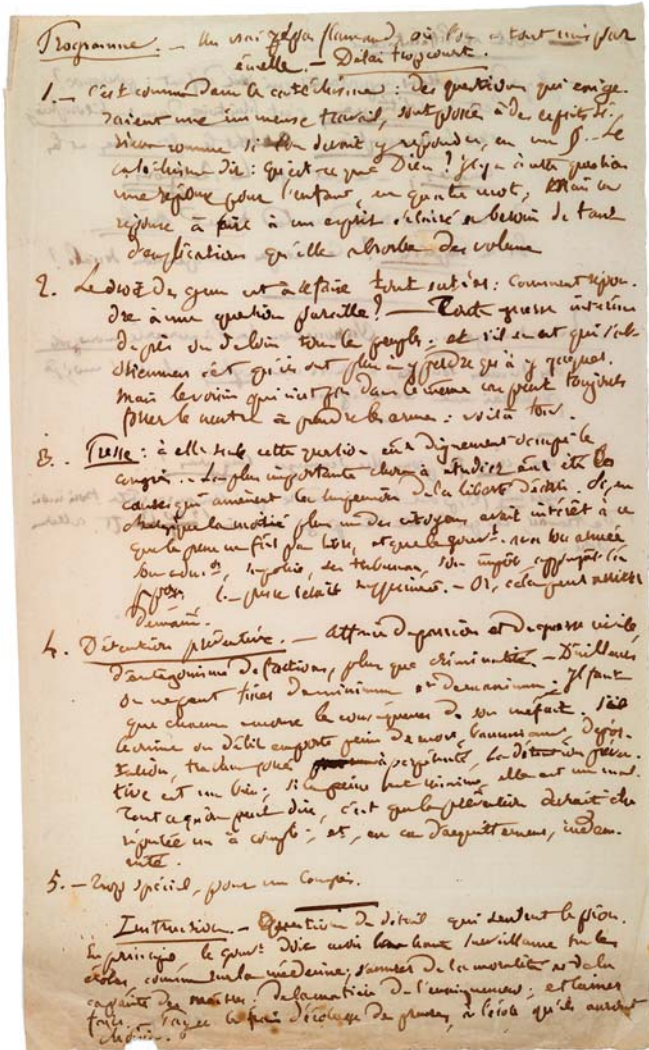 Programme. — Un vrai flamand, où l'on a tout mis par
écuelle. — Délai trop court.
1. — C'est comme dans le catéchisme : des questions qui exige-
raient un immense travail, sont posées à des esprits sé-
rieux comme si l'on devait y répondre, en un §. — Le
catéchisme dit : Qu'est-ce que Dieu ? Il y a à cette question
une réponse pour l'enfant, en quatre mots, Mais la
réponse à faire à un esprit éclairé a besoin de tant
d'explications qu'elle absorbe des volumes
2. Le droit des gens est à refaire tout entier : Comment répon-
dre à une question pareille ? — Toute guerre intéresse
de près ou de loin tous les peuples ; et s'il en est qui s'abs-
tiennent c'est qu'ils ont plus à y perdre qu'à y gagner.
Mais le voisin qui n'est pas dans le même cas peut toujours
forcer le neutre à prendre les armes : voilà tout.
3. Presse : à elle seule, cette question eût dignement occupé le
congrès. — La plus importante chose à étudier eût été les
causes qui amènent la suspension de la liberté d'écrire. Si, en
la moitié plus un des citoyens avait intérêt à ce
que la presse ne fût pas libre, et que le gouvt. avec son armée
son adm., sa police, ses tribunaux, son impôt,
la presse serait supprimée. — Or, cela peut arriver
demain.
4. Détention préventive. — Affaire de passion et de guerre civile,
d'antagonisme de factions, plus que criminalité — D'ailleurs
on ne peut fixer de minimum et de maximum. Il faut
que chacun encoure les conséquences de son méfait. Si
le crime ou délit emporte peine de mort, bannissement, dépor-
tation, travaux forcés à perpétuité, la détention préven-
tive est un bien ; si la peine est minime, elle est un mal.
Tout ce qu'on peut dire, c'est que la prévention devrait être
réputée un à compte ; et, en cas d'acquittement, indem-
nité.
5. — Trop spécial, pour un Congrès.
Instruction. — Question de détail qui sentent le pion.
En principe, le gouvt. doit avoir la haute surveillance sur les
écoles, comme sur la médecine ; s'assurer de la moralité et de la
capacité des maîtres ; de la matière de l'enseignement ; et laisser
faire. Payer les frais d'écolage des pauvres, à l'école qu'ils auront
choisie.